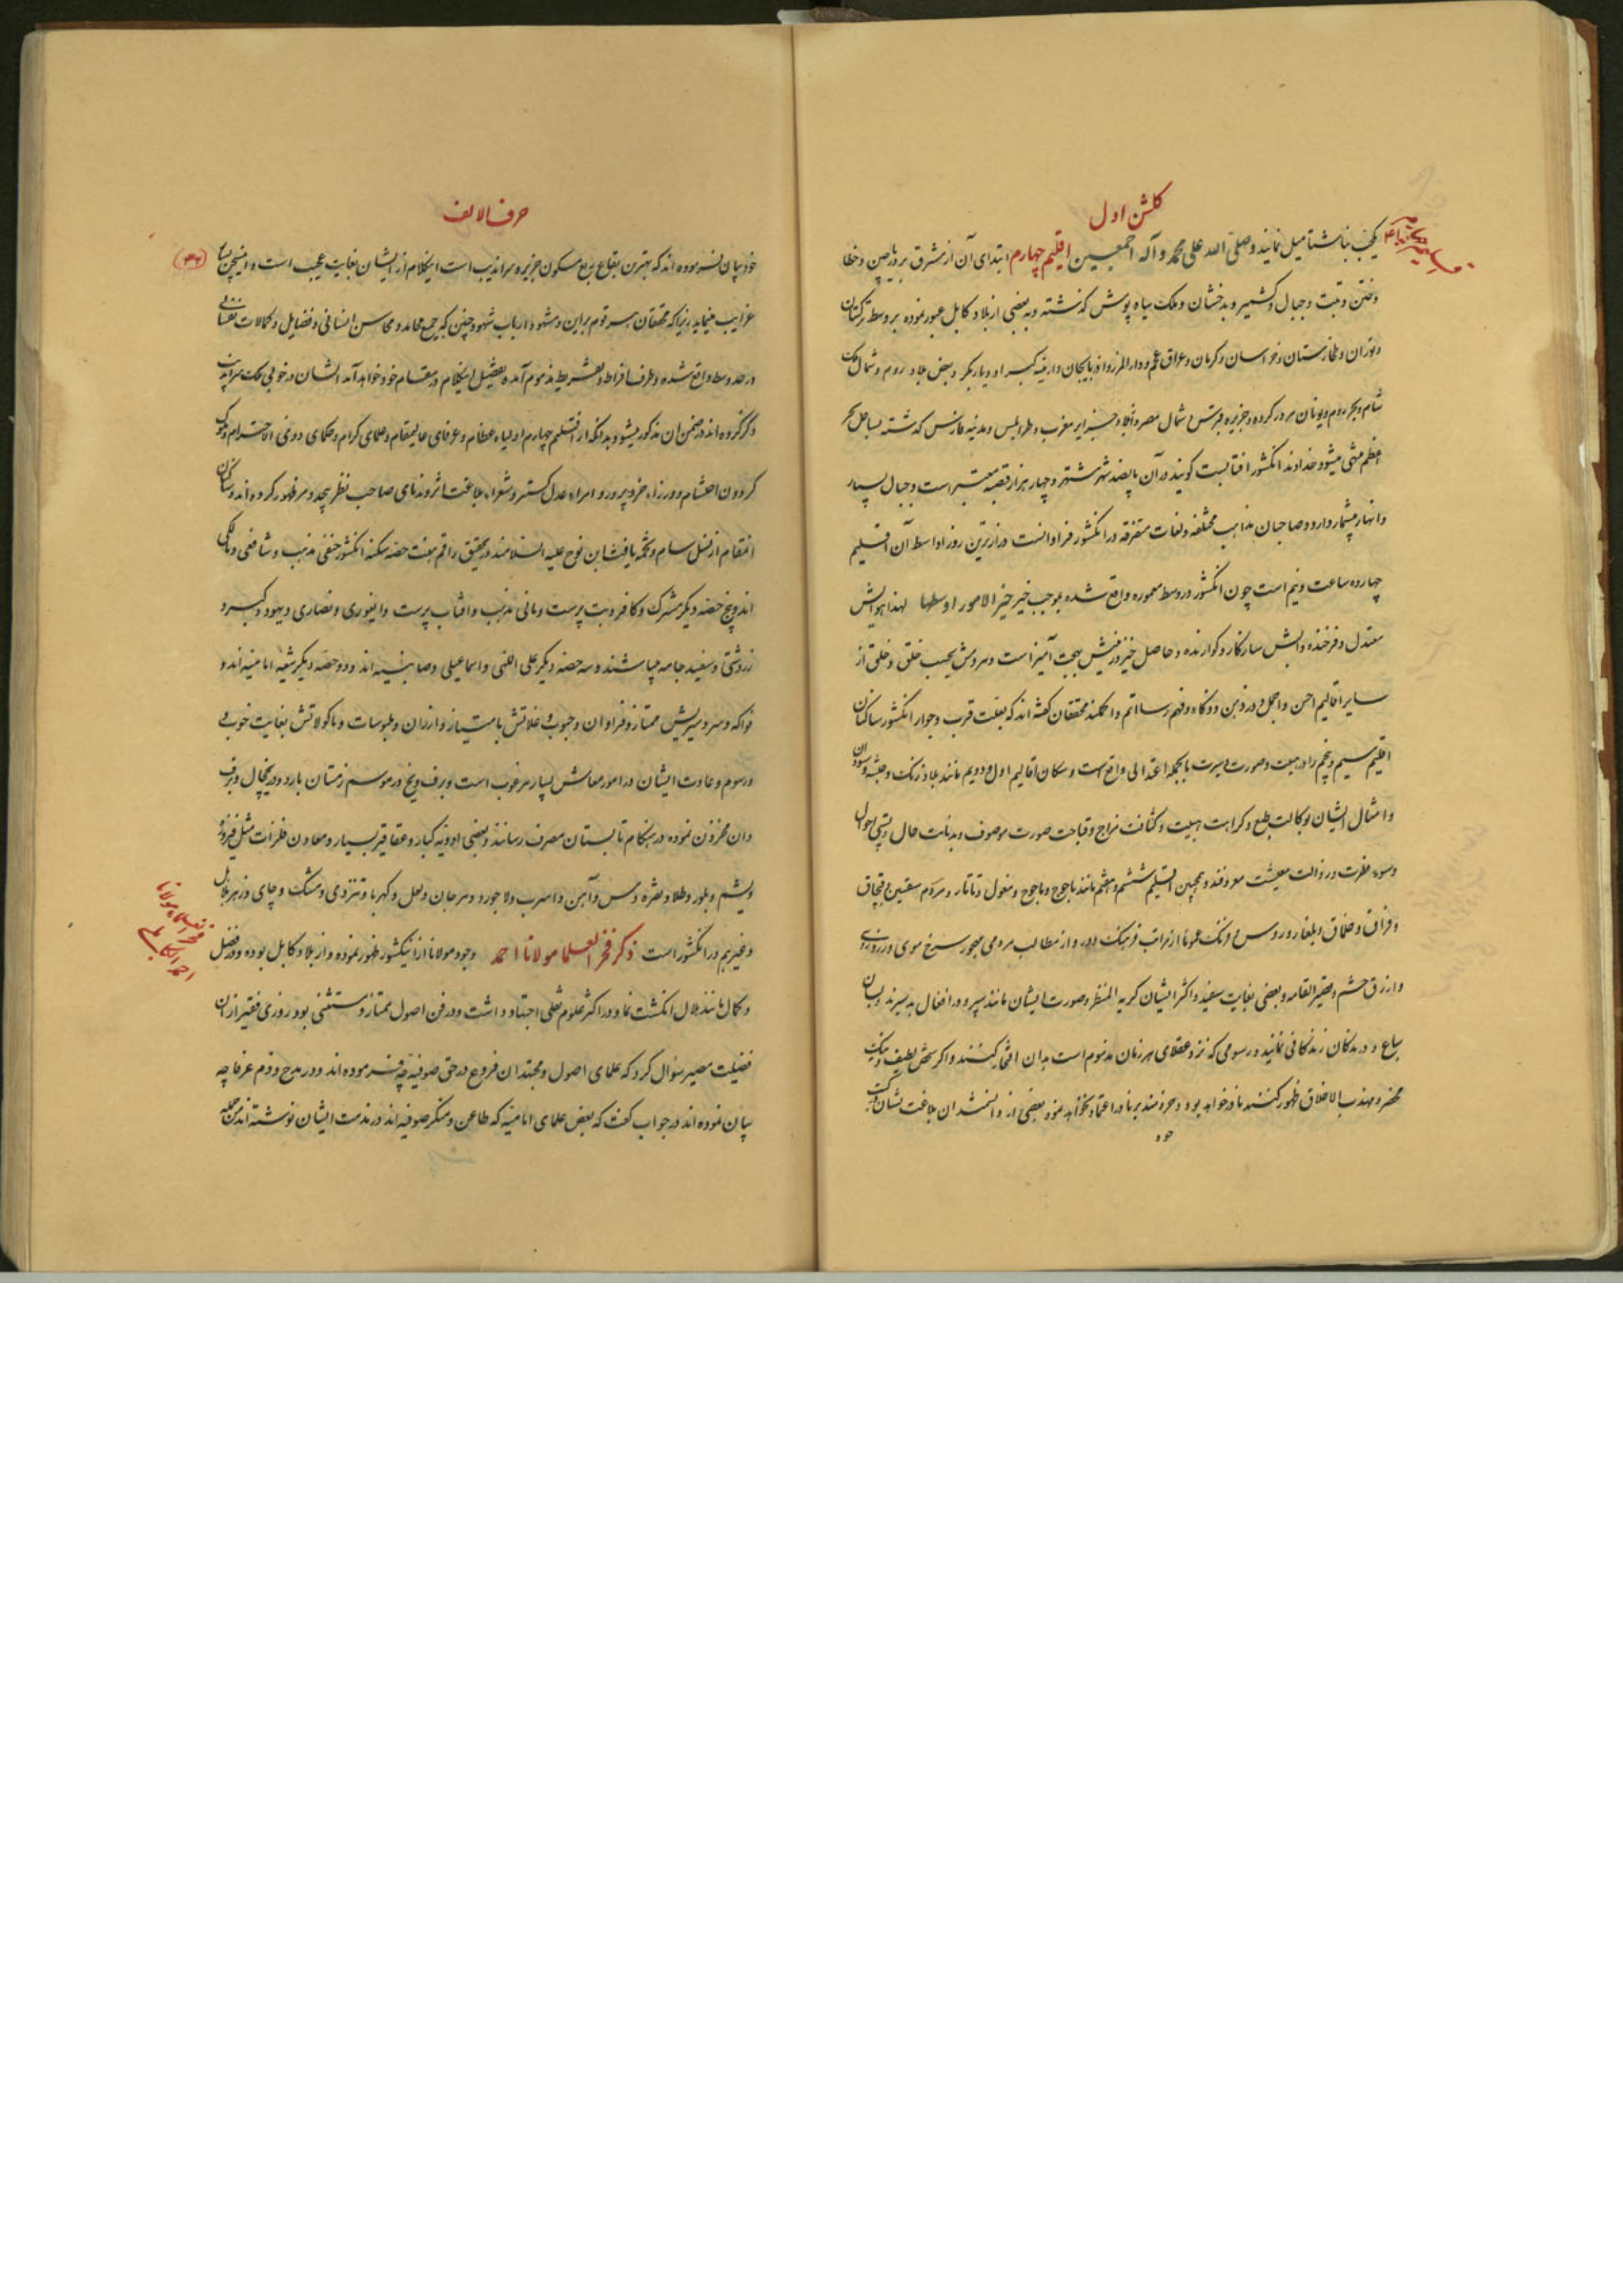 گلشن اول
یکجنب بناشتا میل نمایند و صلی الله علی محمد و آله اجمعین اقلیم چهارم ابتدای آن از مشرق بر دیار چین و خطا
و ختن و تبت و جبال و کشمیر و بدخشان و ملک سیاه پوش گذشته و به بعضی از بلاد کابل عبور نموده بر وسط ترکستان
و توران و طخارستان و خراسان و کرمان و عراق عجم و دارالمرز و اذربایجان و ارمنیه کبرا و دیاربکر و بعض بلاد روم و شمال ملک
شام و بحر روم و یونان مرور کرده و جزیره قبرس و شمال مصر و جزایر مغرب و طرابلس و مدینه فارس گذشته بساحل بحر
اعظم منتهی میشود خداوند انکشور افتابست گویند در آن پانصد شهر مشتهر و چهار هزار قصبه معتبر است و جبال بسیار
و انهار بیشمار دارد و صاحبان مذاهب مختلفه و لغات متفرقه در انکشور فراوانست درازترین روز اواسط آن اقلیم
چهارده ساعت و نیم است چون انکشور در وسط معموره واقع شده بموجب خبر خیر الامور اوسطها لهذا هوایش
معتدل و فرخنده و آبش سازگار و گوارنده و حاصل خیز زمینش بهجت آمیز است و مردمش بحسب خلق و خلق از
سایر اقالیم احسن و اجمل و در ذهن و ذکاء و فهم رسا اتم و اکملند محققان گفته اند که بعلت قرب و جوار انکشور ساکنان
اقلیم سیم و پنجم را در هیئت و صورت و سیرت بالجمله اعتدالی واقع است و سکان اقالیم اول و دویم مانند بلاد زنگ و حبشه و سودان
و امثال ایشان بکالت طبع و کراهت هیئت و کثافت مزاج و قباحت صورت موصوف و بدنائت حال و پستی احوال
و سوء فطرت و رذالت معیشت معروفند و همچنین اقلیم ششم و هفتم مانند یاجوج و ماجوج و مغول و تاتار و مردم سقسین و قبچاق
و قزاق و قلماق و بلغار و روس و فرنگ عموماً از مراتب فرهنگ دور و از مطالب مردمی مهجور سرخ موی و زرد روی
و ازرق چشم و قصیر القامه و بعضی بغایت سفید و اکثر ایشان کریه المنظر و صورت ایشان مانند سیر و در افعال بد سیرند و بسان
سباع و درندگان زندگانی نمایند و رسومی که نزد عقلای هر زمان مذموم است بدان افتخار کنند و اگر شخص لطیف و نیک
محضر و مهذب الاخلاق ظهور کنند نادر خواهد بود و خردمند بر نادر اعتماد نخواهد نمود بعضی از دانشمندان بلاغت نشان در کتب
خود
حرف الالف
خود بیان فرموده اند که بهترین بقاع ربع مسکون جزیره سراندیب است اینکلام از ایشان بغایت عجیب است و اینچنین بیان
غرایب مینماید زیرا که محققان هر قوم براین و مشهود ارباب شهود چنین که جمیع محامد و محاسن انسانی و فضایل و کمالات نفسانی
در حد وسط واقع شده و طرف افراط و تفریط مذموم آمده تفصیل اینکلام در مقام خود خواهد آمد ایشان در خوبی ملک سراندیب
ذکر کرده اند در ضمن آن مذکور میشود بدانکه از اقلیم چهارم اولیاء عظام و عرفای عالیمقام و علمای کرام و حکمای ذوی الاحترام و ملوک
گردون احتشام و وزراء خرد پرور و امراء عدل گستر و شعراء بلاغت اثر و ندمای صاحب نظر بیحد و مر ظهور کرده اند و ساکنان
انمقام از نسل سام و تخمه یافث ابن نوح علیه السلامند در تحقیق راقم هفت حصه سکنه انکشور حنفی مذهب و شافعی و مالکی
اند و پنج حصه دیگر مشرک و کافر و بت پرست و مانی مذهب و افتاب پرست و ایغوری و نصاری و یهود و گبر و
زردشتی و سفید جامه میباشند و سه حصه دیگر علی اللهی و اسماعیلی و صابئیه اند و دو حصه دیگر شیعه امامیه اند و
فواکه و سردسیریش ممتاز و فراوان و حبوب و غلاتش با امتیاز و ارزان و ملبوسات و ماکولاتش بغایت خوب و
رسوم و عادت ایشان در امور معاش بسیار مرغوب است و برف و یخ در موسم زمستان بارد و در یخچال و برف
دان مخزون نموده در هنگام تابستان مصرف رسانند و بعضی ادویه کبار و عقاقیر بسیار و معادن فلزات مثل فیروزه
و یشم و بلور و طلا و نقره و مس و آهن و اسرب و لاجورد و مرجان و لعل و کهربا و مشک و چای و زهر هلاهل
و غیرهم در انکشور است ذکر فخر العلما مولانا احمد وجود مولانا از اینکشور ظهور نموده و از بلاد کابل بوده و در فضل
و کمال مانند هلال انگشت نما و در اکثر علوم نقلی اجتهاد داشت و در فن اصول ممتاز و مستثنی بود روزی فقیر از ان
فضیلت مصیر سؤال کرد که علمای اصول و مجتهدان فروع در حق صوفیه چه فرموده اند و در مدح و ذم عرفا چه
بیان نموده اند در جواب گفت که بعض علمای امامیه که طاعن و منکر صوفیه اند در مذمت ایشان نوشته اند من جمله
فخر العلما مولانا
احمد الکابلی